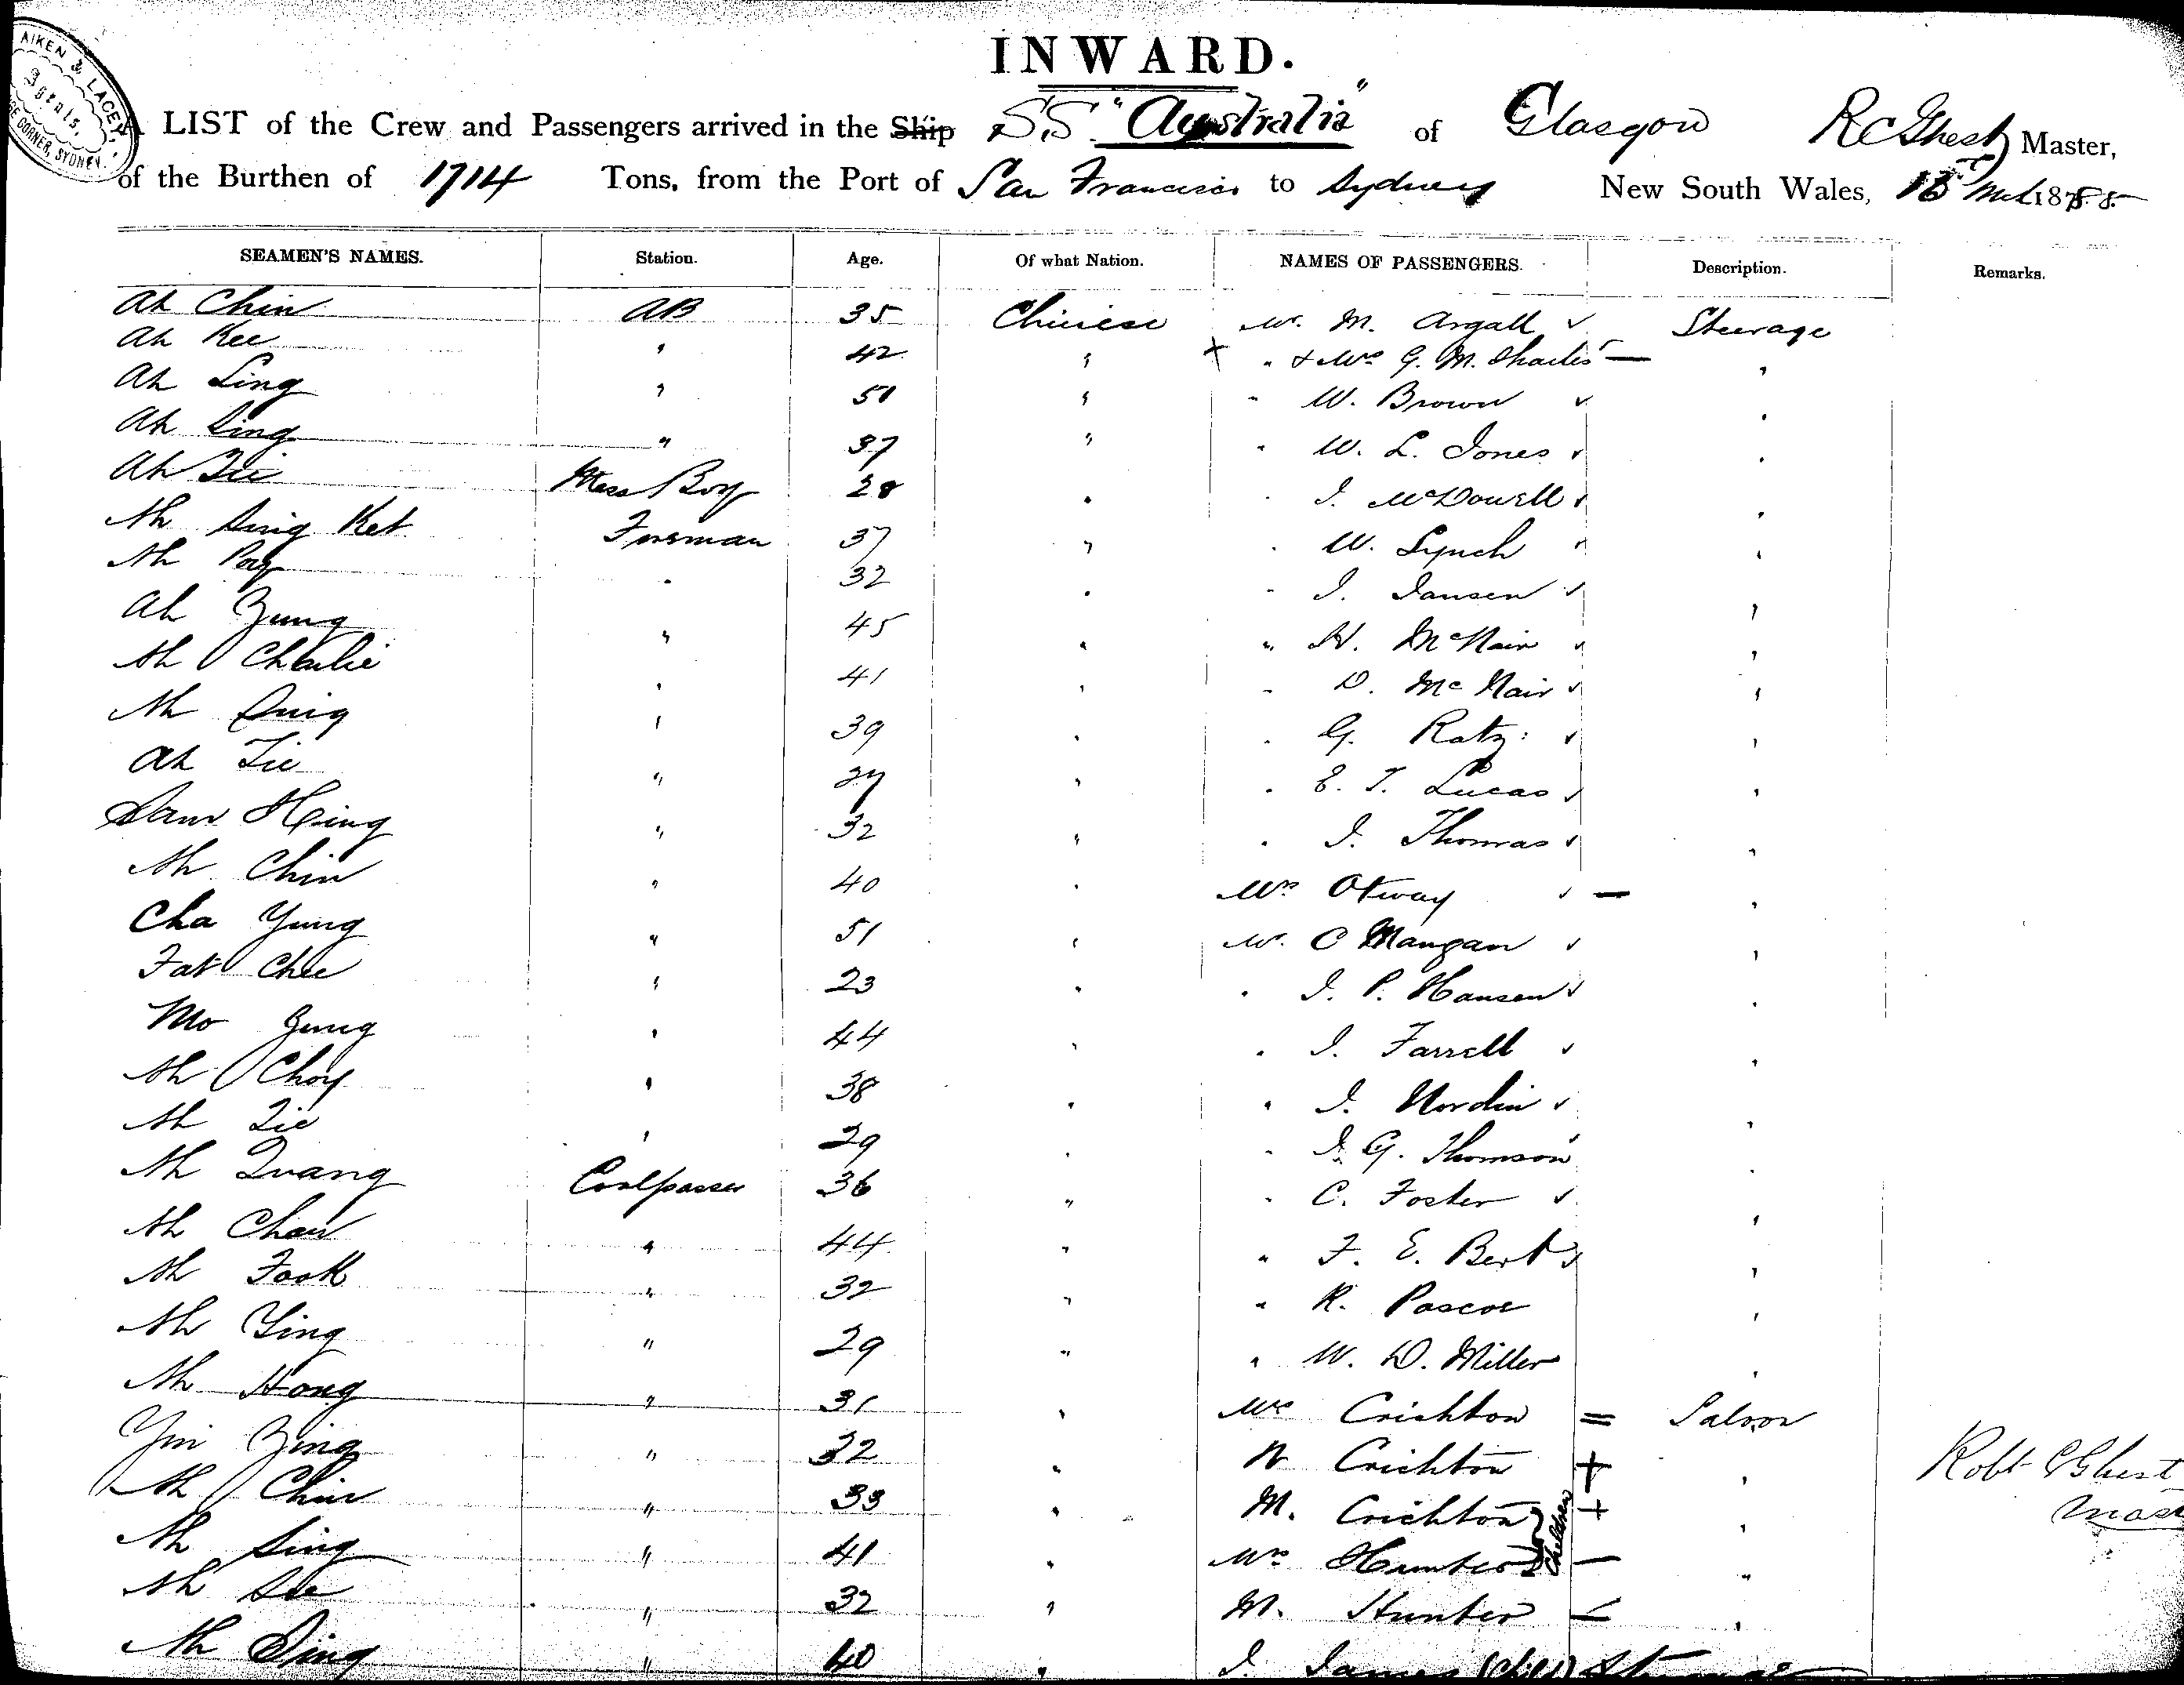 AIKEN & LACEY,
Agents,
CORNER, SYDNEY.
INWARD.
A LIST of the Crew and Passengers arrived in the Ship S.S. "Australia" of Glasgow R C Ghest Master,
of the Burthen of 1714 Tons, from the Port of San Francisco to Sydney New South Wales, 1878
SEAMEN'S NAMES. Station. Age. Of what Nation. NAMES OF PASSENGERS. Description. Remarks.
Ah Chin AB 35 Chinese Mr. M. Argall ✓ Steerage
Ah Kee " 42 " + " & Mrs G. M. —
Ah Ling " 51 " " W. Brown ✓ "
Ah Sing " 37 " " W. L. Jones ✓ "
Ah Mess Boy 28 " " J. McDowell ✓ "
Ah Sing Ket Fireman 37 " " W. Lynch ✓ "
Ah Poy " 32 " " J. Jansen ✓ "
Ah Gung " 45 " " H. McNair ✓ "
Ah Charlie " 41 " " D. McNair ✓ "
Ah " 39 " " G. Ratz ✓ "
Ah " 27 " " E. T. Lucas ✓ "
Sam Hing " 32 " " J. Thomas ✓ "
Ah Chin " 40 " Mrs Otway ✓ — "
Cha Yung " 51 " Mr. C Mangan ✓ "
Fat Chee " 23 " " J. P. Hansen ✓ "
Mo Gung " 44 " " J. Farrell ✓ "
Ah Choy " 38 " " J. Nordin ✓ "
Ah " 29 " " J. G. Thomson ✓ "
Ah Quang Coalpasser 36 " " C. Foster ✓ "
Ah Chan " 44 " " F. E. Bert ✓ "
Ah Fook " 32 " " R. Pascoe "
Ah Ying " 29 " " W. D. Miller "
Ah Hong " 31 " Mrs Crichton = Saloon
Yin " 32 " Crichton + " Robt C Ghest
Ah Chin " 33 " M. Crichton + " Mast
Children
Ah Sing " 41 " Mrs Hunter — "
Ah See " 32 " M. Hunter — "
Ah " 40 " J. James (Child)